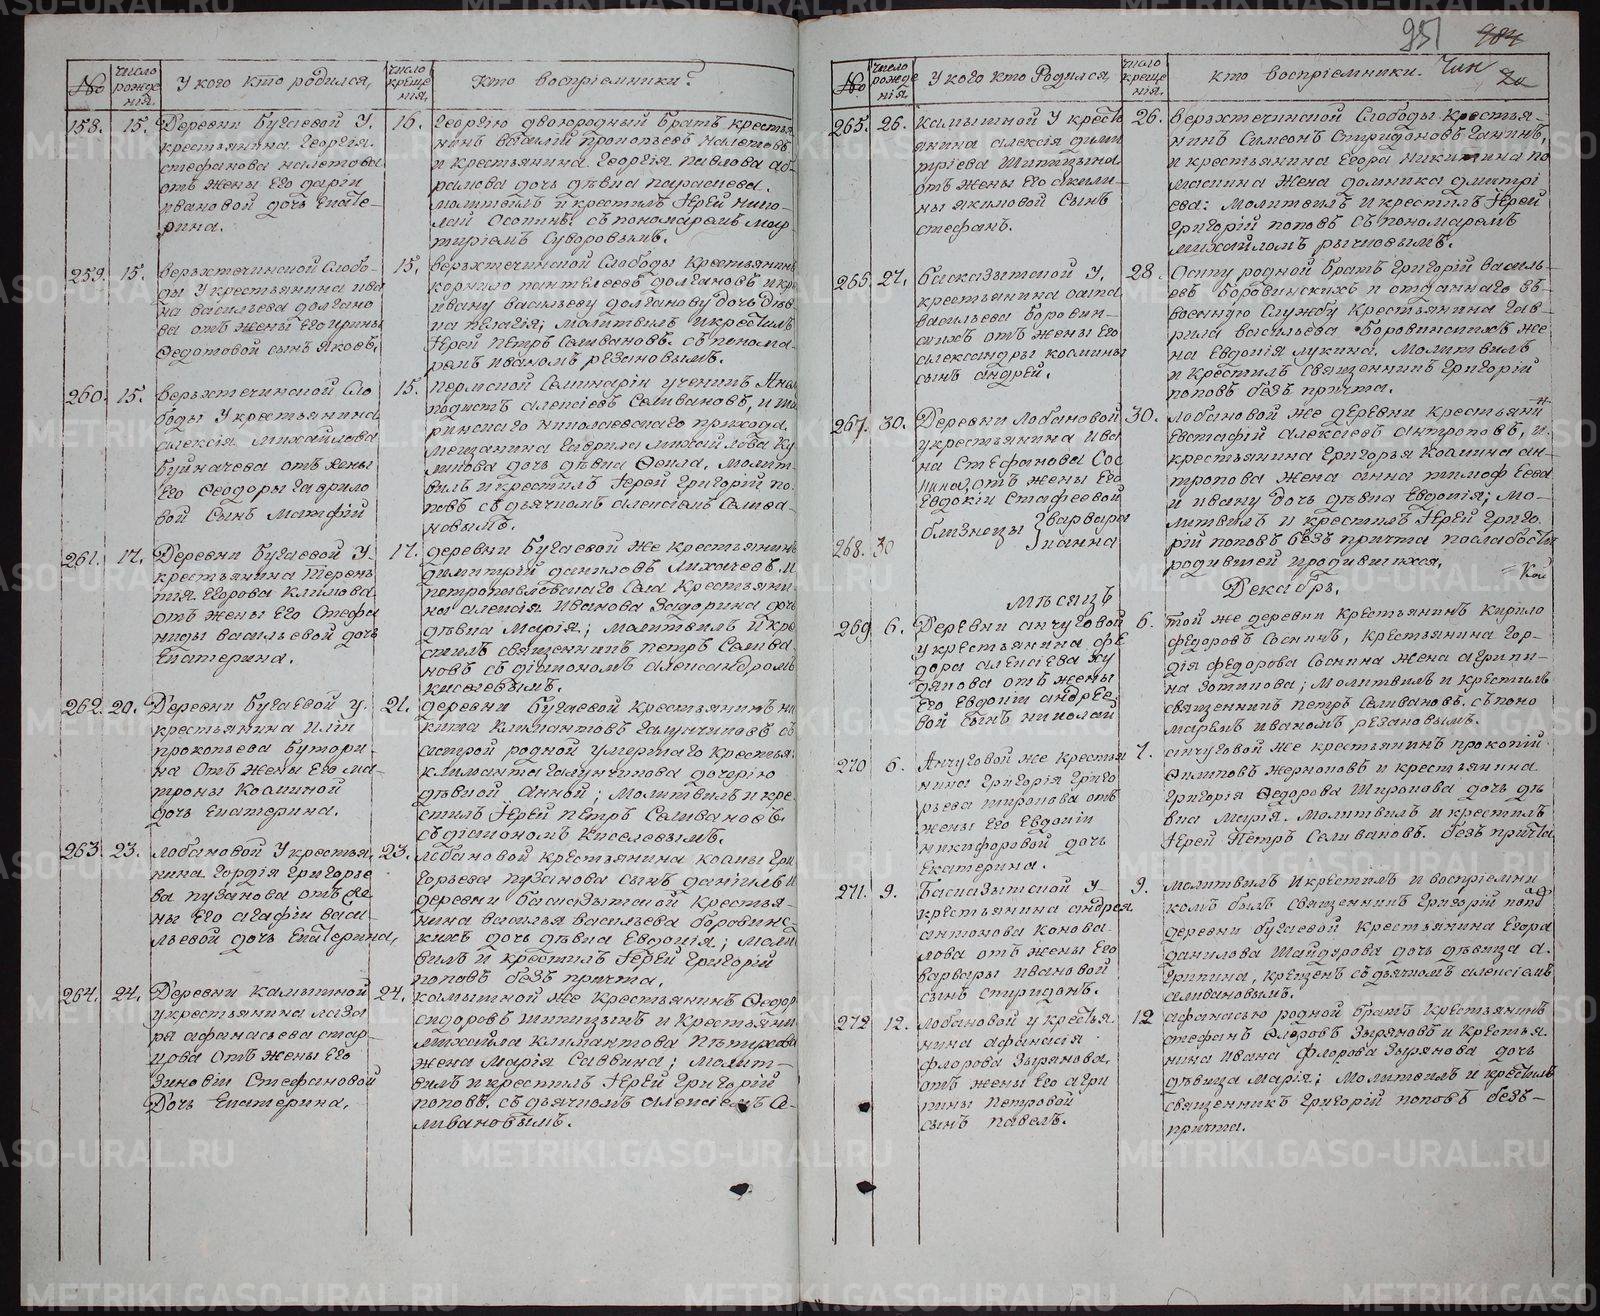 951 984
№
число рождения.
У кого кто родился,
число крещения.
Кто восприемники?
158. 15. Деревни бугаевой У
крестьянина Георгия
стефанова налетова
отъ жены Его дарiи
ивановой дочь Екате-
рина.
16. Георгiю двоюродный братъ крестья
нинъ Василiй прокопьевъ налетовъ
и крестьянина Георгiя павлова аб-
рамова дочь дѣвка параскева.
молитвилъ и крестилъ Iерей нико-
лай Осопинъ. съ пономаремъ мар
тирiемъ Суворовымъ.
259. 15. верьхтечинской Слобо-
ды У крестьянина ива
на васильева долгано
ва отъ жены Его ирины
Федотовой сынъ яковъ,
15. верьхтечинской Слободы Крестьянинъ
корнило пантелеевъ долгановъ и кр
ивану васильеву долганову дочь дѣв
ка пелагiя; молитвилъ и крестилъ
Iерей Петръ Селивановъ. съ понома-
ремъ иваномъ резановымъ.
260. 15. верьхтечинской Сло
боды У крестьянина
алексiя михайлова
буйначева отъ жены
Его Феодоры гаврило
вой Сынъ матфiй
15. пермской Семинарiи ученикъ
подистъ алексiевъ Селивановъ, и
ринскаго николаевскаго прихода
мещанина гаврила михайлова ку
ликова дочь дѣвка Фекла, молит-
вилъ и крестилъ Iерей григорiй по-
повъ съ дьячкомъ алексiемъ Селива-
новымъ.
261. 17. Деревни бугаевой У
крестьянина Терень
тiя Егорова климова
отъ жены Его Стефа
ниды васильевой дочь
Екатерина.
17. деревни бугаевой же крестьянинъ
димитрiй даниловъ лихачевъ, и
петропавловскаго села Крестьяни-
на алексiя иванова Задорина дочь
дѣвка марiя; молитвилъ и кре
стилъ священникъ петръ Селива
новъ съ дiакономъ александромъ
киселевымъ.
262. 20. Деревни бугаевой у
крестьянина илiи
прокопьева бутори-
на отъ жены Его ма-
троны козминой
дочь Екатерина.
21. деревни бугаевой крестьянинъ ни
кита климантовъ галунчиковъ съ
сестрой родной умершаго крестья
климанта галунчикова дочерiю
дѣвкой анной; молитвилъ и кре-
стилъ Iерей петръ Селивановъ
съ дiакономъ Киселевымъ.
263. 23. лобановой У крестья-
нина гордiя григорье
ва пузанова отъ же
ны Его агафiи васи-
льевой дочь Екатерина,
23. лобановой крестьянина козмы гри
горьева пузанова сынъ данiилъ и
деревни басказытской крестья-
нина василья васильева боровинс-
кихъ дочь дѣвка Евдокiя; моли
вилъ и крестилъ Iерей григорiй
поповъ безъ причта,
264. 24. Деревни камышной
у крестьянина лаза
ря афанасьева стар-
цова отъ жены Его
Зиновiи Стефановой
Дочь Екатерина,
24. камышной же крестьянинъ Федор
сидоровъ шитицынъ и крестьяни
михайла климантова Петихова
жена марiя Саввина; молит-
вилъ и крестилъ Iерей григорiй
поповъ. съ дьячкомъ алексiемъ Се-
ливановымъ.
№
число рождения
У кого кто Родился,
число крещения.
кто восприемники.
265. 26. камышной У кресть
янина алексiя дими
трiева шитицына
отъ жены Его акили-
ны якимовой Сынъ
стефанъ.
26. верьхтечинской Слободы крестья-
нинъ Симеонъ Спиридоновъ ганинъ,
и крестьянина Егора никитина по
маскина жена домника дмитрi
ева: молитвилъ и крестилъ Iерей
григорiй поповъ съ пономаремъ
михайломъ рычковымъ.
265. 27. басказытской У,
крестьянина осипа
васильева боровин-
скихъ отъ жены Его
александры козмины
сынъ андрей.
28. Осипу родной братъ григорiй василь-
евъ боровинскихъ и отданнаго въ
военную Службу крестьянина гав-
рила васильева боровинскихъ же-
на Евдокiя лукина. молитвилъ
и крестилъ священникъ григорiй
поповъ безъ причта.
267. 30. Деревни лобановой
у крестьянина ива
на стефанова Сос
нина, отъ жены Его
Евдокiи Стафеевой
близнецы } варвара
268. 30 и анна
30. лобановой же деревни крестьяни-
Евстафiй алексiевъ антроповъ, и
крестьянина григорья козмина ан-
тропова жена анна тимофеева
и ивану дочь дѣвка Евдокiя; мо-
литвилъ и крестилъ Iерей григо
рiй поповъ безъ причта по слабости
родившей и родившихся,
мѣсяцъ Декабрь,
269 6. Деревни анчуговой
у крестьянина фе
дора алексiева ху
дякова отъ жены
Его Евдокiи андрее-
вой сынъ николай
6. той же деревни крестьянинъ кирило
федоровъ Соснинъ, крестьянина гор-
дiя федорова Соснина жена агрипи-
на Зотикова; молитвилъ и крестилъ
священникъ петръ Селивановъ. съ поно
маремъ иваномъ резановымъ.
270 6. Анчуговой же крестья
нина григорiя григо
рьева широкова отъ
жены Его Евдокiи
никифоровой дочь
Екатерина.
7. анчуговой же крестьянинъ прокопiй
Филиповъ жерноковъ и крестьянина
григорiя Федорова широкова дочь дѣ
вка марiя. молитвилъ и крестилъ
Iерей Петръ Селивановъ. безъ причта
271. 9. Басказытской У
крестьянина андрея
антонова конова-
лова отъ жены Его
варвары ивановой
сынъ спиридонъ.
9. молитвилъ и крестилъ и воспрiемни
комъ былъ священникъ григорiй поповъ
деревни бугаевой крестьянина Егора
данилова шайдурова дочь дѣвица а
грипина, крещенъ съ дьячкомъ алексiемъ
селивановымъ.
272 12. лобановой у крестья
нина афанасiя
флорова зырянова,
отъ жены Его агри
пины петровой
сынъ павелъ.
12 афанасью родной братъ крестьянинъ
стефанъ Флоровъ Зыряновъ и крестья
нина ивана флорова зырянова дочь
дѣвица марiя; молитвилъ и крестилъ
священникъ григорiй поповъ безъ-
причта.